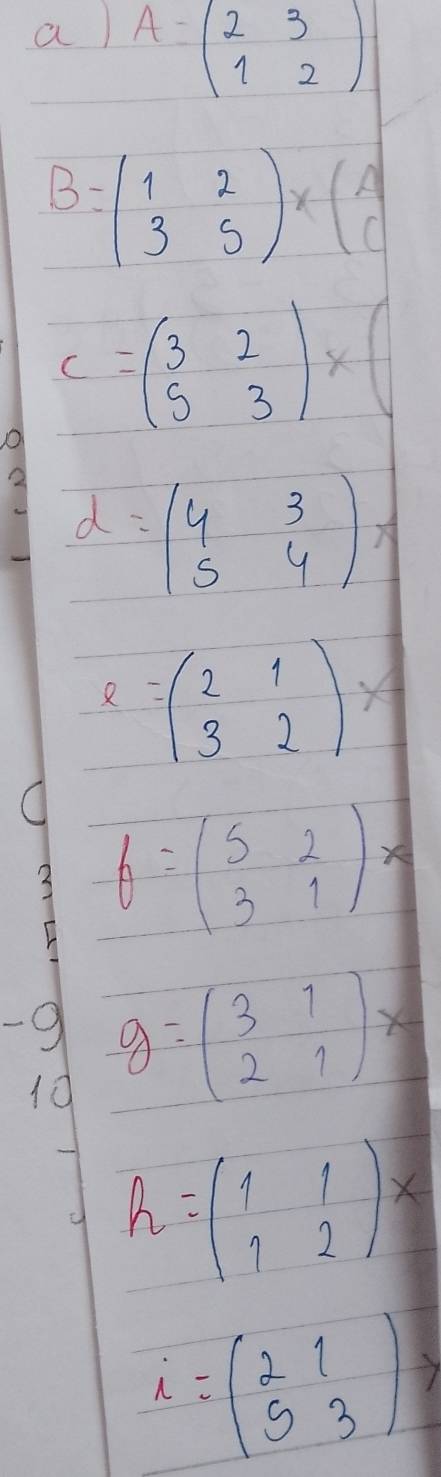 a) A = (2 3
1 2)
B = (1 2
3 5) x (A
C
c = (3 2
5 3) x (
d = (4 3
5 4) x
e = (2 1
3 2) x
f = (5 2
3 1) x
g = (3 1
2 1) x
h = (1 1
1 2) x
i = (2 1
5 3) x
3
-9
10